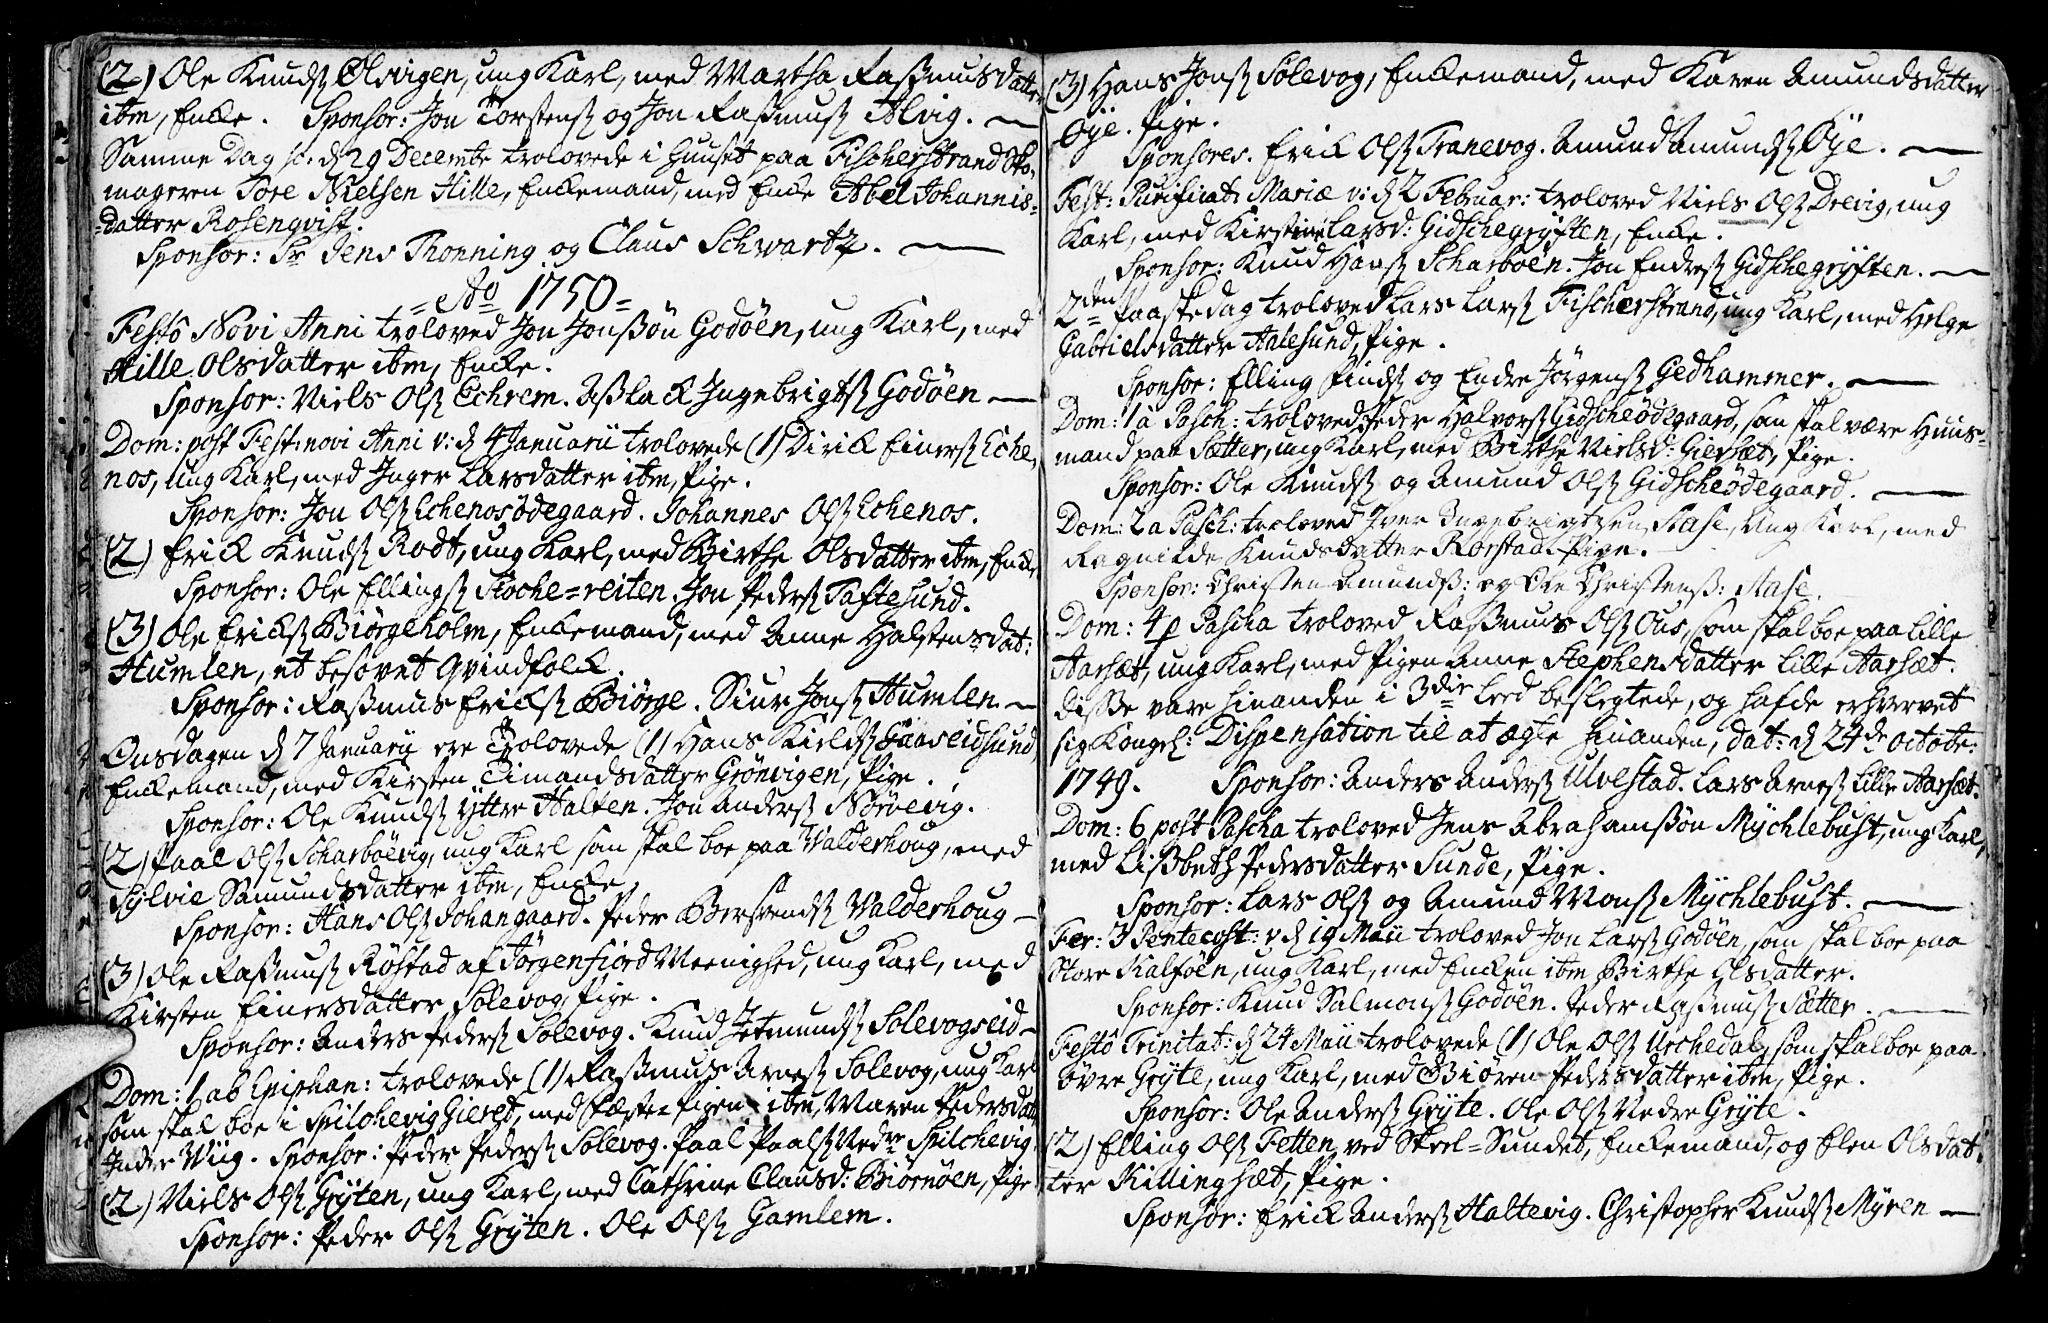 (2) Ole Knuds Elsvigen, ung Karl, med Martha Rasmusdatter
ibm, Encke. Sponsor: Jon Torstens og Jon Rasmus Alvig.
Samme Dag sc. d 29 Decembr trolovede i Huuset paa Fischerstrand Sko-
mageren Tore Nielsen Hille, Enckemand, med Encke Abel Johannis-
datter Rosenqvist.
Sponsor: Sr Jens Thonning og Claus Schwartz.
Ao 1750
Festo Novi Anni troloved Jon Jonssøn Godøen, ung Karl, med
Hille Olsdatter ibm, Encke.
Sponsor: Niels Ols Echrem. Aslack Ingebrigts Godøen
Dom: post Fest: novi Anni v: d 4 Januarii trolovede (1) Dirick Einers Eche-
nos, ung Karl, med Inger Larsdatter ibm, Pige.
Sponsor: Jon Ols Echenosødegaard. Johannes Ols Echenos.
(2) Erick Knuds Rodt, ung Karl, med Birthe Olsdatter ibm, Encke
Sponsor: Ole Ellings Stoche=reiten. Jon Peders Taftesund.
(3) Ole Ericks Biørgeholm, Enckemand, med Anne Halstensdat:
Humlen, et besovet Qvindfolck.
Sponsor: Rasmus Ericks Biørge. Siur Jons Humlen
Onsdagen d 7 Januarii ere Trolovede (1) Hans Kields Gaaseidsund
Enckemand, med Kirsten Timandsdatter Grønvigen, Pige.
Sponsor: Ole Knuds Ytter Halten. Jon Anders Nørøevig.
(2) Paal Ols Scharbøevig, ung Karl som skal boe paa Walderhoug, med
Sylvie Samundsdatter ibm, Encke.
Sponsor: Hans Ols Johangaard. Peder Bersvends Walderhoug
(3) Ole Rasmus Røstad af Jørgenfiord Meenighed, ung Karl, med
Kirsten Einersdatter Solevog, Pige.
Sponsor: Anders Peders Solevog. Knud Jetmunds Solevogseid
Dom: 1 ab Epiphan: trolovede (1) Rasmus Arnes Solevog, ung Karl
som skal boe i Spilchevig Gieret, med Pigen ibm, Maren Pedersdatt
Inder Wiig. Sponsor: Peder Peders Solevog. Paal Paals Nedre Spilchevig
(2) Niels Ols Gryten, ung Karl, med Cathrine Clausd: Biørnøen, Pige
Sponsor: Peder Ols Gryten. Ole Ols Gamlem.
(3) Hans Jons Solevog, Enckemand, med Karen Amundsdatter
Øye. Pige.
Sponsores. Erick Ols Tranevog. Amund Amunds Øye.
Fest: Purificat: Mariæ v: d 2 Februar: troloved Niels Ols Drevig, ung
Karl, med Kirstine Larsd: Gidschegryften, Encke.
Sponsor: Knud Hans Scharbøen. Jon Endres Gidschegryften.
2den Paaskedag troloved Lars Lars Fischerstrand, ung Karl, med Helge
Gabrielsdatter Aalesund, Pige.
Sponsor: Elling Pinds og Endre Jørgens Gedhammer.
Dom: 1 a Pasch: troloved Peder Halvors Gidscheødegaard, som skal være Huus-
mand paa Sætter, ung Karl, med Birthe Nielsd: Giersæt, Pige.
Sponsor: Ole Knuds og Amund Ols Gidscheødegaard.
Dom: 2 a Pasch: troloved Iver Ingebrigtsen Aase, Ung Karl, med
Ragnilde Knudsdatter Rørstad Pige.
Sponsor: Christen Amunds: og Ole Christens: Aase.
Dom: 4 p Pascha troloved Rasmus Ols Ous, som skal boe paa Lille
Aarsæt, ung Karl, med Pigen Anne Stephensdatter Lille Aarsæt.
disse vare hinanden i 3die Leed beslegtede, og hafde erhvervet
sig Kongel: Dispensation til at ægte hinanden, dat: d 24de Octobr:
1749. Sponsor: Anders Anders Ulvestad. Lars Arnes Lille Aarsæt.
Dom: 6 post Pascha troloved Jens Abrahamssøn Mychlebust, ung Karl,
med Lisbeth Pedersdatter Sunde, Pige.
Sponsor: Lars Ols og Amund Mons Mychlebust.
Fer: 3 Pentecost: v d 19 Maii troloved Jon Lars Godøen, som skal boe paa
Store Kalføen, ung Karl, med Encken ibm Birthe Olsdatter.
Sponsor: Knud Salmons Godøen. Peder Rasmus Sætter.
Festo Trinitat: d 24 Maii trolovede (1) Ole Ols Urchedal, som skal boe paa
øvre Gryte, ung Karl, med Biøren Pedersdatter ibm, Pige.
Sponsor: Ole Anders Gryte. Ole Ols Nedre Gryte.
(2) Elling Ols Fetten ved Skeel=Sundet, Enckemand, og Elen Olsdat-
ter Killingsæt, Pige.
Sponsor: Erick Anders Haltevig. Christopher Knuds Myren